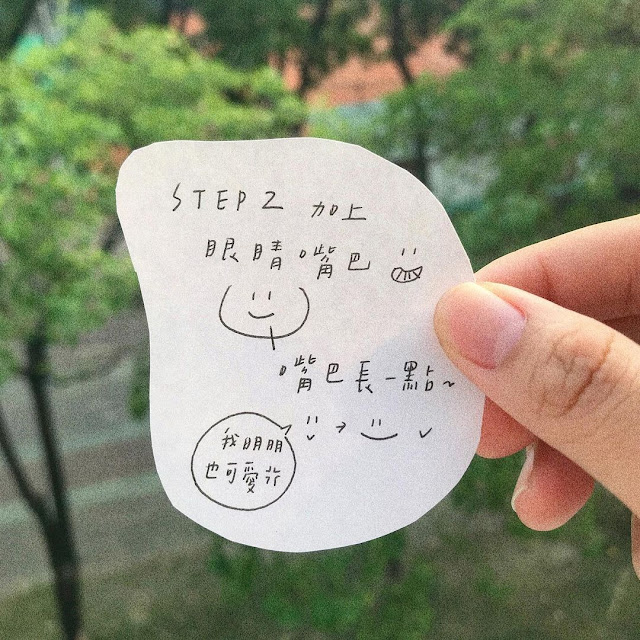 STEP 2 加上
眼睛嘴巴
嘴巴長一點~
我明明
也可愛ㄚ